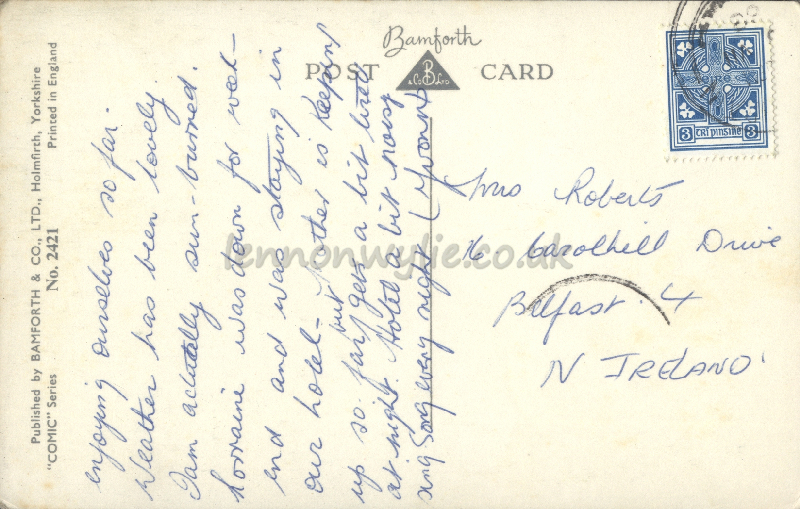 Published by BAMFORTH & CO., LTD., Holmfirth, Yorkshire
"COMIC" Series No. 2421 Printed in England
Bamforth
POST CARD
B
& Co LTD
3 TRÍ PINSINE 3
enjoying ourselves so far.
Weather has been lovely
I am actually sun-burned.
Lorraine was down for week-
end and was staying in
our hotel - Mother is keeping
up so far but gets a bit tired
at night. Hotel a bit noisy
sing song every night (Yvonne
Mrs Roberts
16 Carolhill Drive
Belfast. 4
N IRELAND
lennonwylie.co.uk